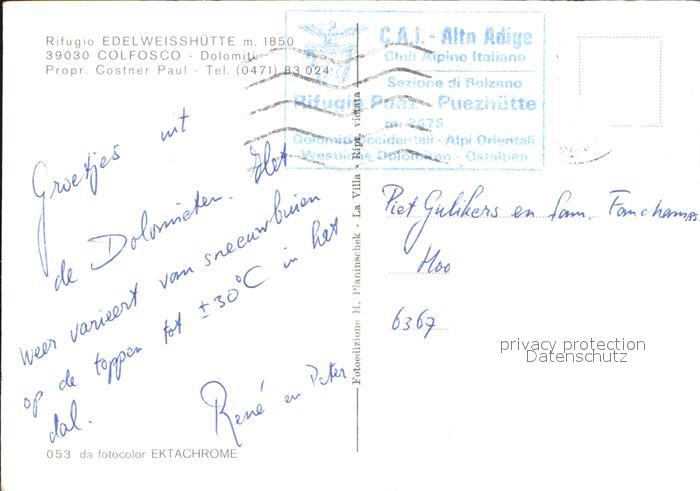 Rifugio EDELWEISSHÜTTE m. 1850
39030 COLFOSCO - Dolomiti
Propr. Costner Paul - Tel. (0471) 83 024
C.A.I. - Alto Adige
Club Alpino Italiano
Sezione di Bolzano
Rifugio Puez - Puezhütte
m. 2475
Dolomiti Occidentali - Alpi Orientali
Westliche Dolomiten - Ostalpen
Groetjes uit
de Dolomieten. Het
weer varieert van sneeuwbuien
op de toppen tot ±30°C in het
dal.
René en Peter
Fotoedizione H. Planinschek - La Villa - Ripr. vietata
Piet Gulikers en fam. Fanchamps
Hoo
6367
privacy protection
Datenschutz
053 da fotocolor EKTACHROME